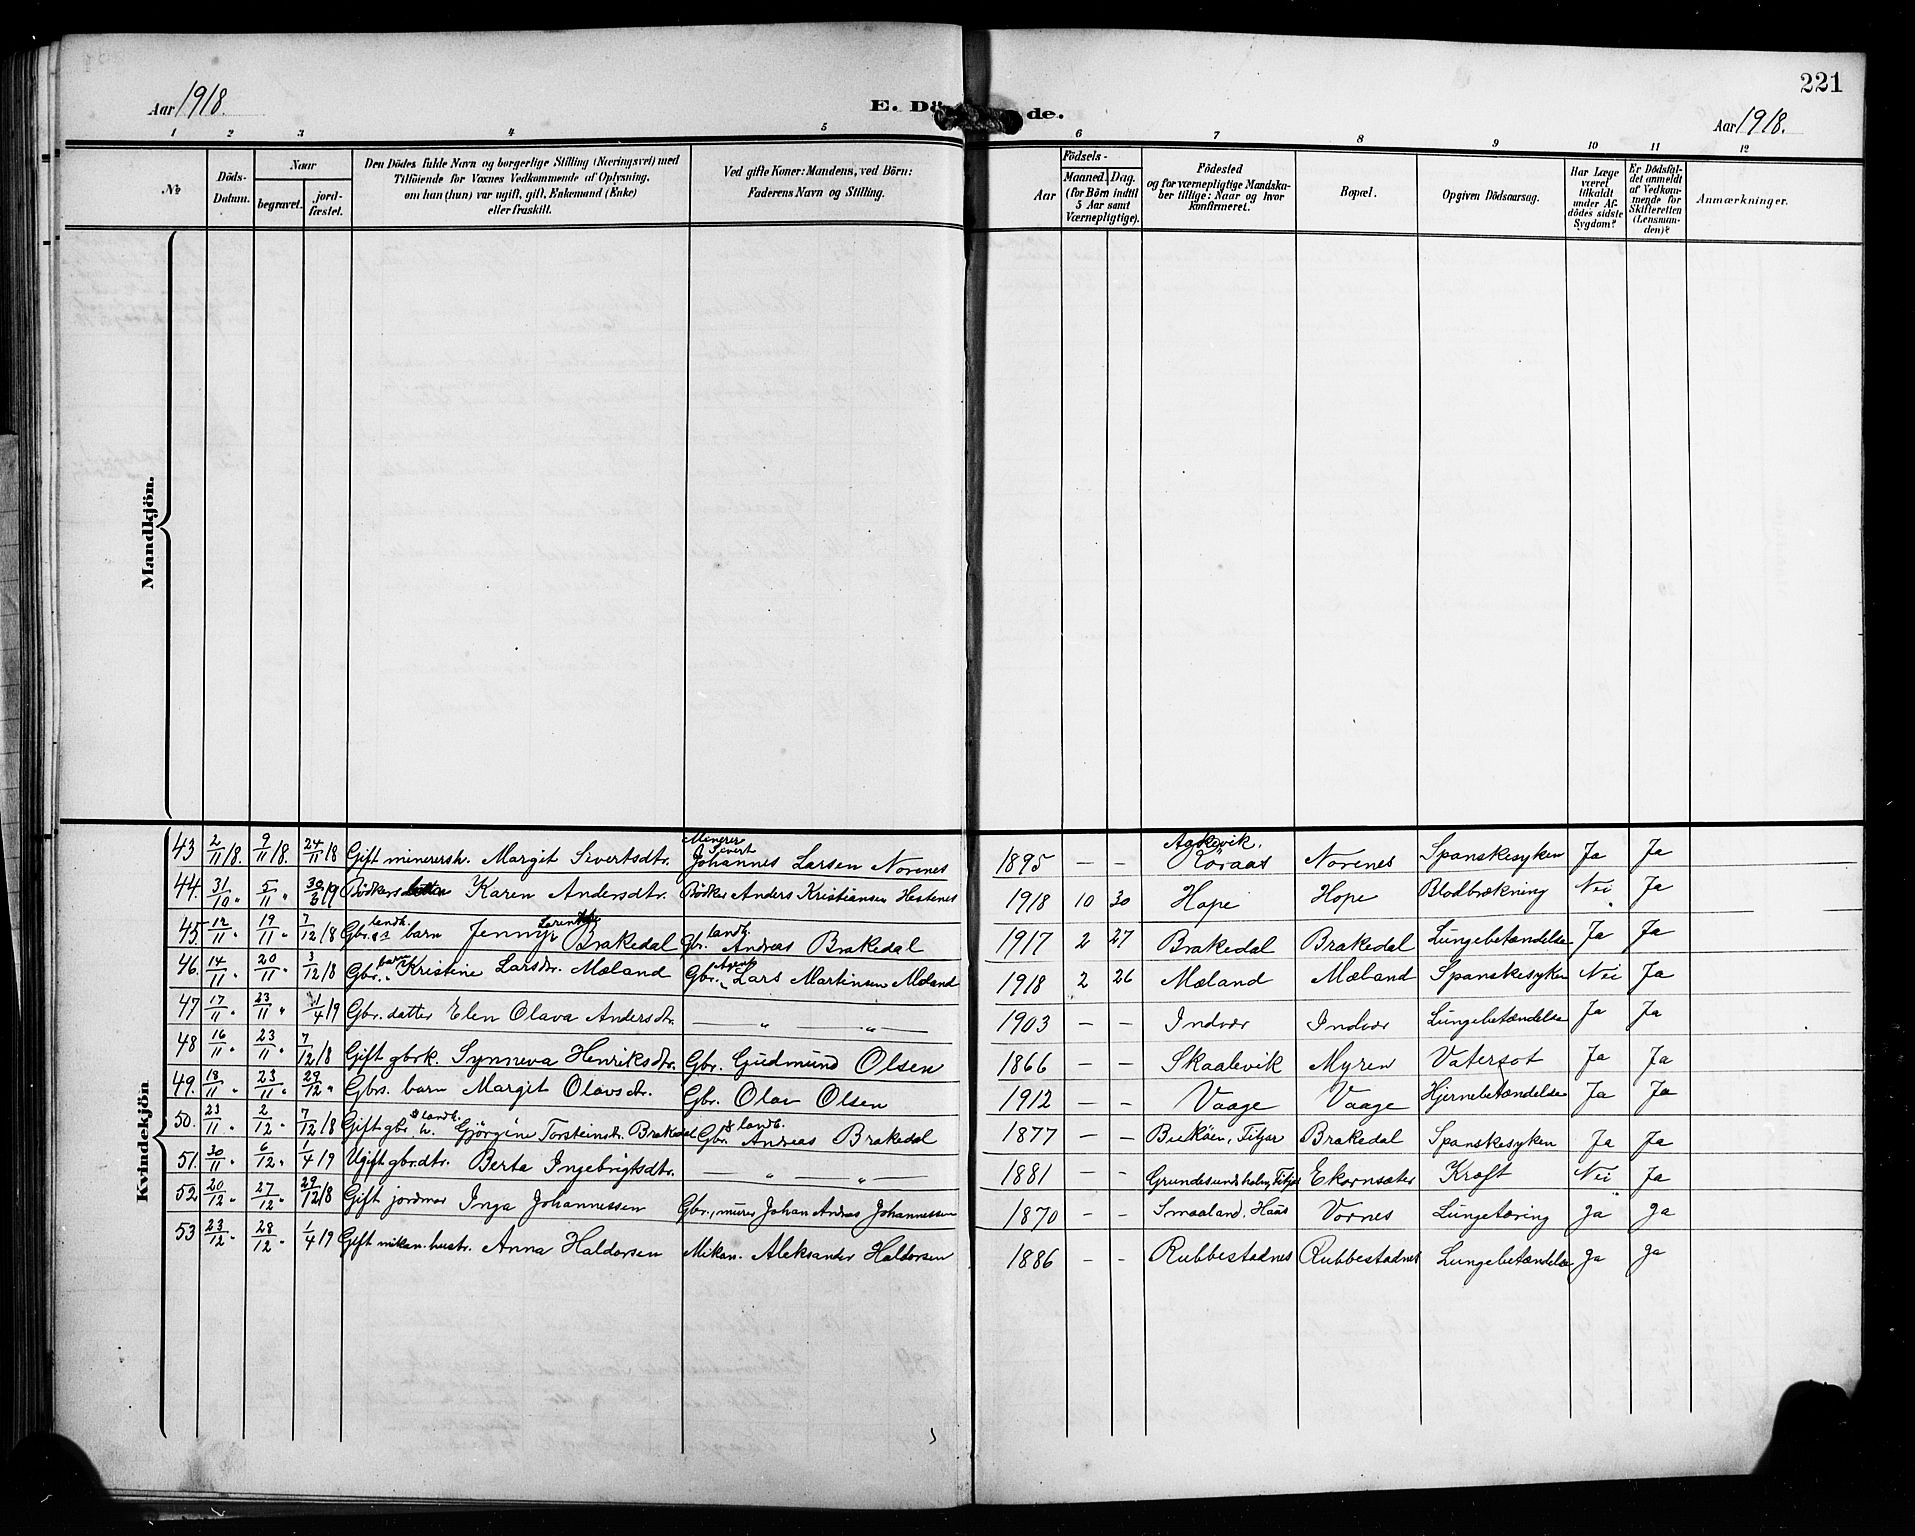 221
Aar 1918.
E. Dö de.
Aar 1918.
1 2 3 4 5 6 7 8 9 10 11 12
No
Döds-Datum.
Naar
begravet.
jord-fæstet.
Den Dödes fulde Navn og borgerlige Stilling (Næringsvei) med
Tilföiende for Voxnes Vedkommende af Oplysning,
om han (hun) var ugift, gift, Enkemand (Enke)
eller fraskilt.
Ved gifte Koner: Mandens, ved Börn:
Faderens Navn og Stilling.
Födsels-
Aar
Maaned. Dag.
(for Börn indtil
5 Aar samt
Værnepligtige).
Födested
og for værnepligtige Mandska-
ber tillige: Naar og hvor
konfirmeret.
Bopæl.
Opgiven Dödsaarsag.
Har Læge
været
tilkaldt
under Af-
dödes sidste
Sygdom?
Er Dödsfal-
det anmeldt
af Vedkom-
mende for
Skifteretten
(Lensman-
den)?
Anmærkninger.
Mandkjön.
Kvindekjön
43 2/11 18. 9/11 18. 24/11 18 Gift minerersh. Margit Sivertsdtr. Minerer Sivert Johannes Larsen Norenes 1895 — — Agkevik. Koraas Norenes Spanskesyken Ja Ja
44. 31/10 " 5/11 " 30/3 19 Bødkers Karen Andersdtr. Bødker Anders Kristiansen Hestenes 1918 10 30 Hope Hope Blodbrækning Nei Ja
45. 12/11 " 19/11 " 7/12 18 Gbr. landh. barn Jenny Brakedal Gbr. landh. Andreas Brakedal 1917 2 27 Brakedal Brakedal Lungebetændelse Ja Ja
46. 14/11 " 20/11 " 3/12 18 Gbr. barn Kristine Larsdtr. Mæland Gbr. Lars Martinsen Mæland 1918 2 26 Mæland Mæland Spanskesyken Nei Ja
47 17/11 " 23/11 " 1/4 19 Gbr. datter Elen Olava Andersdtr. — " — " — 1903 — — Indvær Indvær Lungebetændelse Ja Ja
48 16/11 " 23/11 " 7/12 18 Gift gbrk. Synneva Henriksdtr. Gbr. Gudmund Olsen 1866 — — Skaalevik Myren Vatersot Ja Ja
49. 18/11 " 23/11 " 29/12 " Gbrs. barn Margit Olavsdtr. Gbr. Olav Olsen 1912 — — Vaage Vaage Hjernebetændelse Ja Ja
50. 23/11 " 2/12 " 7/12 18 Gift gbr. & landh. h. Gjörgine Torsteinsdtr. Brakedal Gbr. & landh. Andreas Brakedal 1877 — — Fitjar Brakedal Spanskesyken Ja Ja
51. 30/11 " 6/12 " 1/4 19 Ugift gbr.dtr. Berta Ingebrigtsdtr. — " — " — 1881 — — Grundesundholm, Fitjar Ekornsæter Kræft Nei Ja
52. 20/12 " 27/12 " 29/12 18 Gift jordmor Inga Johannessen Gbr., murer Johan Andreas Johannessen 1870 — — Smaaland, Haus Vornes Lungetæring Ja Ja
53 23/12 " 28/12 " 1/4 19 Gift mikan. hustr. Anna Haldorsen Mikan. Aleksander Haldorsen 1886 — — Rubbestadnes Rubbestadnes Lungebetændelse Ja Ja